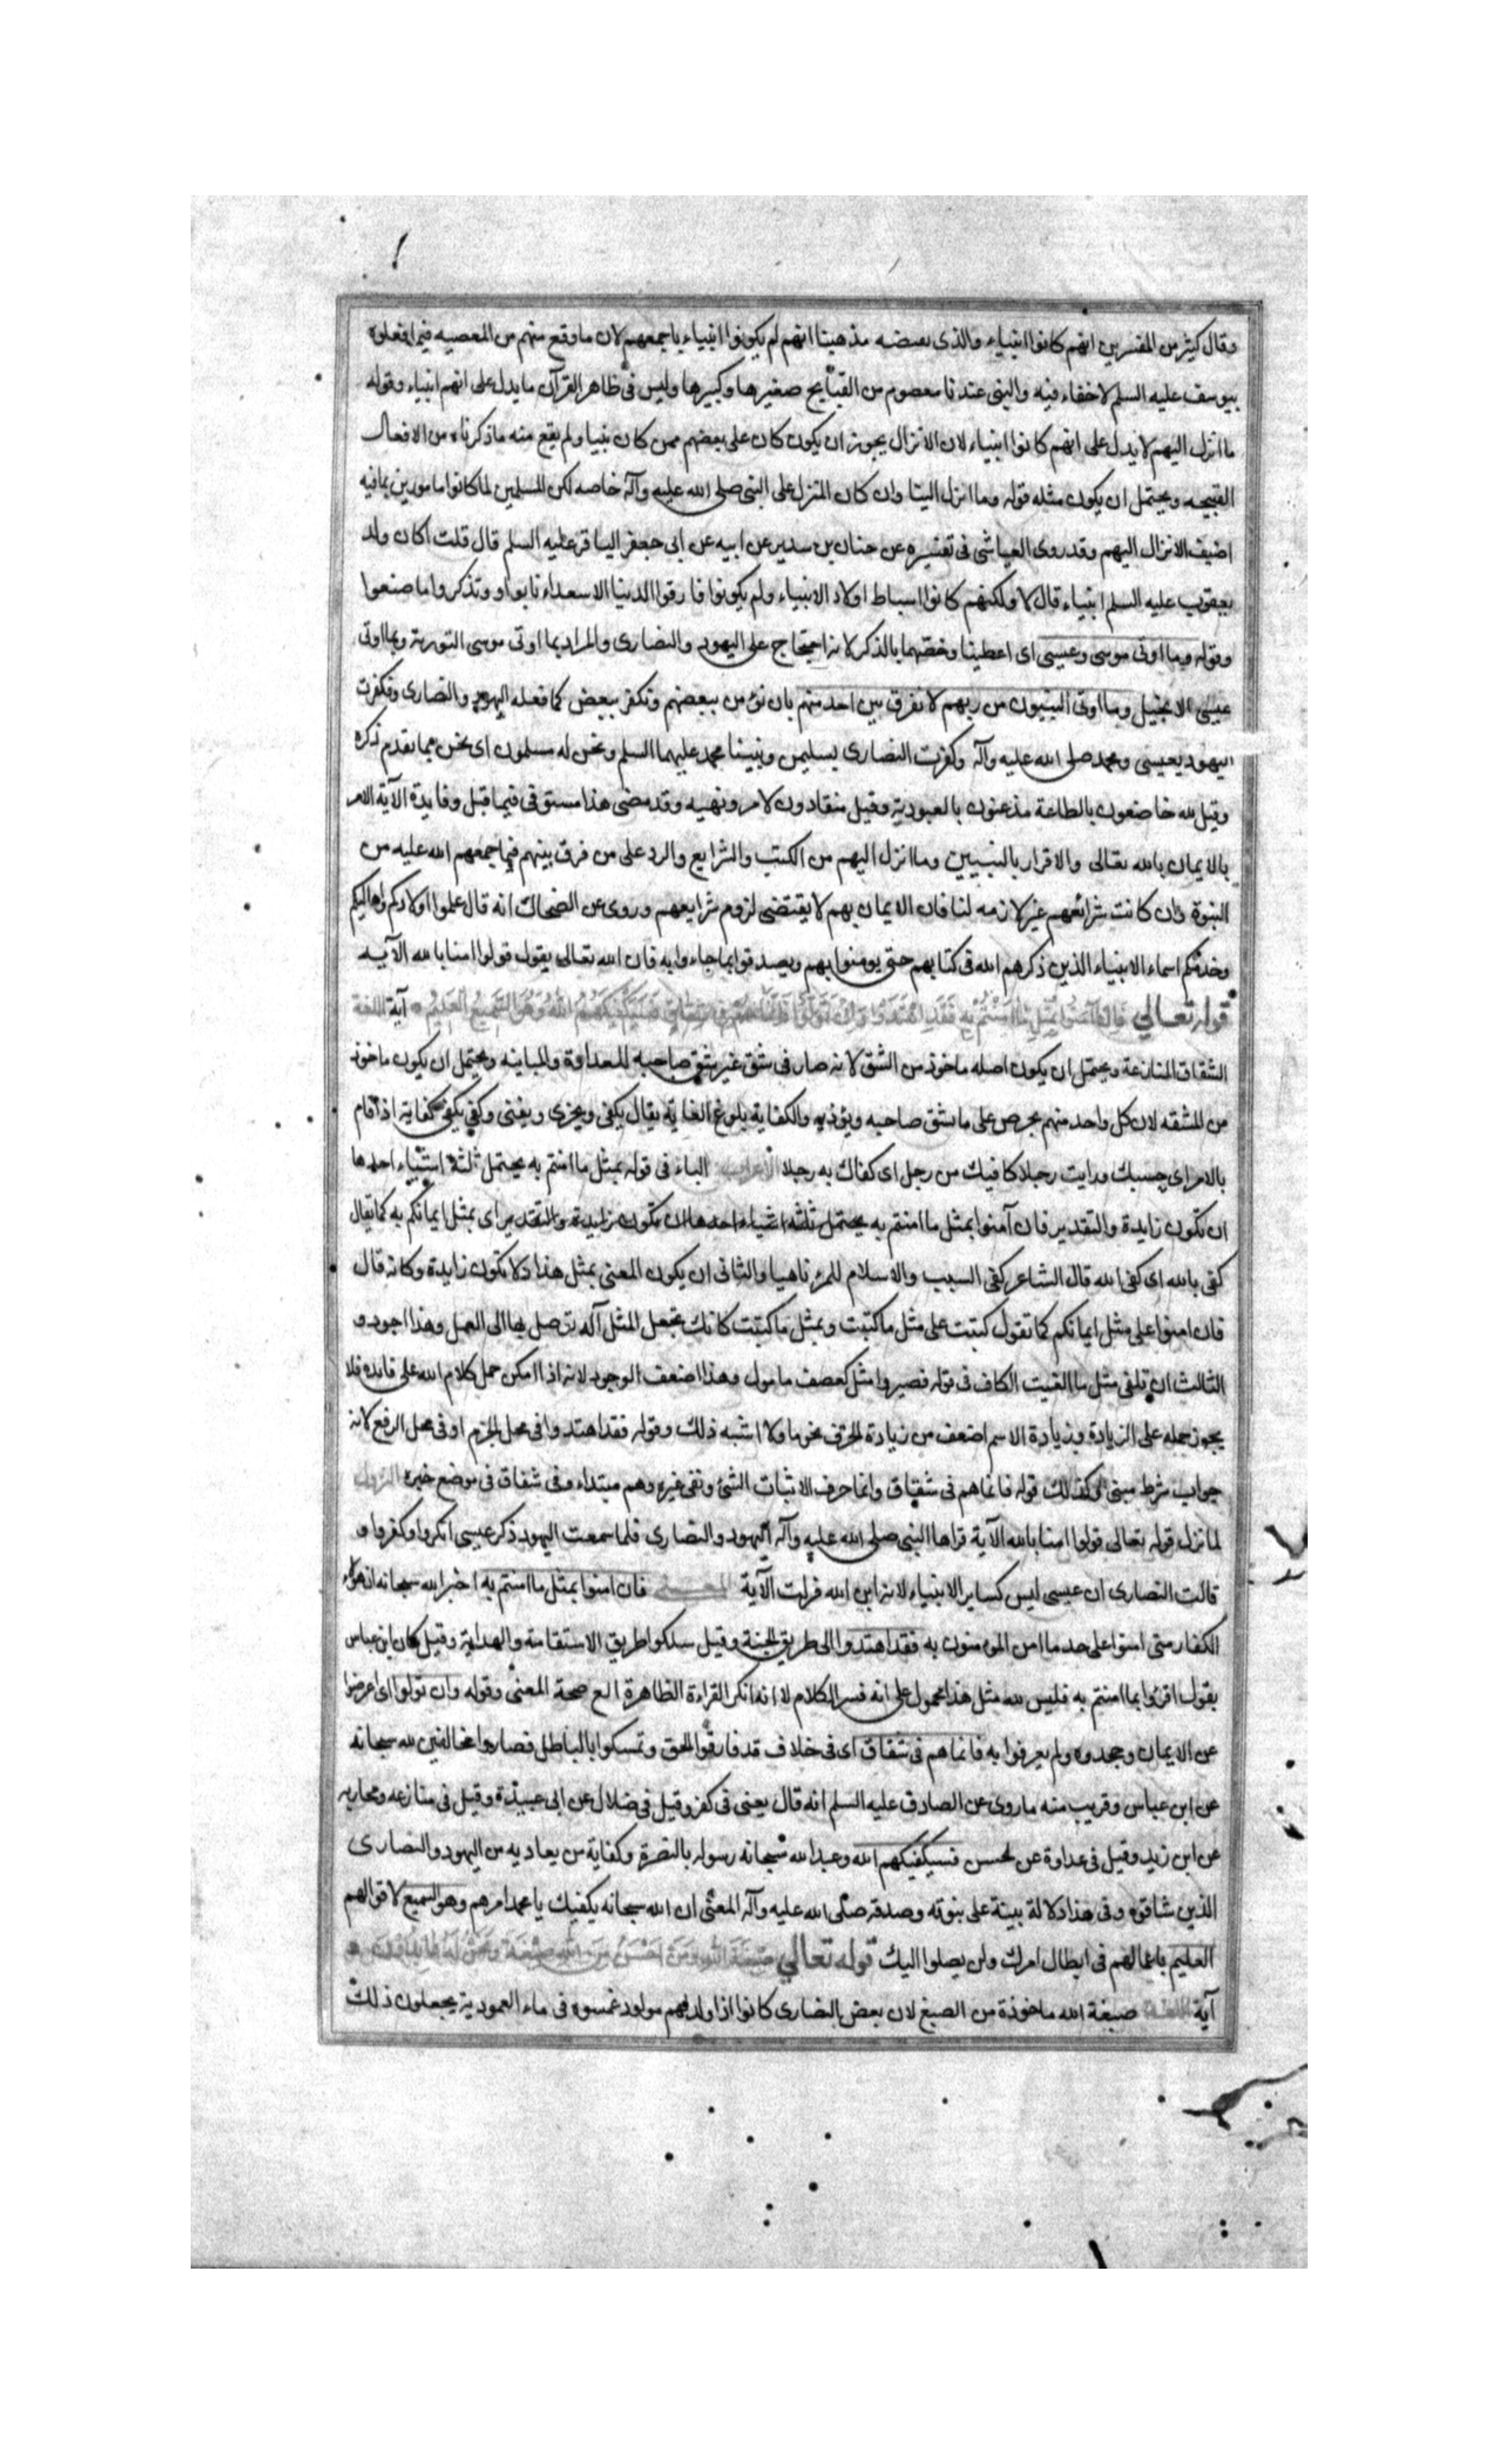 وقال كثير من المفسرين انهم كانوا انبياء والذى يقتضيه مذهبنا انهم لم يكونوا انبياء باجمعهم لان ما وقع منهم من المعصيه فيما فعلوه
بيوسف عليه السلم لا خفاء فيه والنبى عندنا معصوم من القبايح صغيرها وكبيرها وليس فى ظاهر القرآن ما يدل على انهم انبياء وقوله
ما انزل اليهم لا يدل على انهم كانوا انبياء لان الانزال يجوز ان يكون كان على بعضهم ممن كان نبيا ولم يقع منه ما ذكرناه من الافعال
القبيحه ويحتمل ان يكون مثله قوله وما انزل الينا وان كان المنزل على النبى صلى الله عليه وآله خاصه لكن المسلمين لما كانوا مامورين بما فيه
اضيف الانزال اليهم وقد روى العياشى فى تفسيره عن حنان بن سدير عن ابيه عن ابى جعفر الباقر عليه السلم قال قلت اكان ولد
يعقوب عليه السلم انبياء قال لا ولكنهم كانوا اسباط اولاد الانبياء ولم يكونوا فارقوا الدنيا الا سعداء تابوا وتذكروا ما صنعوا
وقوله وما اوتى موسى وعيسى اى اعطينا وخصهما بالذكر لانه احتجاج على اليهود والنصارى والمراد بما اوتى موسى التورية وبما اوتى
عيسى الانجيل وما اوتى النبيون من ربهم لا نفرق بين احد منهم بان نؤمن ببعضهم ونكفر ببعض كما فعله اليهود والنصارى وفكفرت
اليهود بعيسى ومحمد صلى الله عليه وآله وكفرت النصارى بسليمن ونبينا محمد عليهما السلم ونحن له مسلمون اى نحن مما تقدم ذكره
وقيل لله خاضعون بالطاعة مذعنون بالعبودية وقيل منقادون لامره ونهيه وقد مضى هذا مستوفى فيما قبل وفايدة الآية الامر
بالايمان بالله تعالى والاقرار بالنبيين وما انزل اليهم من الكتب والشرايع والرد على من فرق بينهم فيما جمعهم الله عليه من
النبوة وان كانت شرائعهم غير لازمه لنا فان الايمان بهم لا يقتضى لزوم شرايعهم وروى عن الضحاك انه قال علموا اولادكم واهاليكم
وخدمكم اسماء الانبياء الذين ذكرهم الله فى كتابهم حتى يومنوا بهم ويصدقوا بما جاءوا به فان الله تعالى يقول قولوا امنا بالله الآيه
قوله تعالى فان آمنوا بمثل ما آمنتم به فقد اهتدوا وان تولوا فانما هم فى شقاق فسيكفيكهم الله وهو السميع العليم آية اللغة
الشقاق المنازعة ويحتمل ان يكون اصله ماخوذ من الشق لانه صار فى شق غير شق صاحبه للعداوة والمباينه ويحتمل ان يكون ماخوذ
من المشقه لان كل واحد منهم يحرص على ما يشق صاحبه ويؤذيه والكفاية بلوغ الغاية يقال يكفى ويجزى ويغنى وكفى يكفى كفاية اذا قام
بالامر اى حسبك ورايت رجلا كافيك من رجل اى كفاك به رجلا الاعراب الباء فى قوله بمثل ما امنتم به يحتمل ثلثة اشياء احدها
ان تكون زايدة والتقدير فان آمنوا بمثل ما امنتم به يحتمل ثلثه اشياء احدها ان تكون زايدة والتقدير اى بمثل ايمانكم به كما يقال
كفى بالله اى كفى الله قال الشاعر كفى السيب والاسلام للمرء ناهيا والثانى ان يكون المعنى بمثل هذا ولا تكون زايدة وكانه قال
فان امنوا على مثل ايمانكم كما تقول كتبت على مثل ما كتبت وبمثل ما كتبت كانك تجعل المثل آلة توصل بها الى العمل وهذا اجود و
الثالث ان تلغى مثل ما الغيت الكاف فى قوله فصيروا مثل كعصف ماكول وهذا اضعف الوجوه لانه اذا امكن حمل كلام الله على فايده فلا
يجوز حمله على الزيادة وزيادة الاسم اضعف من زيادة الحرف نحو ما ولا اشبه ذلك وقوله فقد اهتدوا فى محل الجزم او فى محل الرفع لانه
جواب شرط مبنى وكذلك قوله فانما هم فى شقاق وانما حرف الاثبات الشئ ونفى غيره وهم مبتداء وفى شقاق فى موضع خبره النزول
لما نزل قوله تعالى قولوا امنا بالله الآية قراها النبى صلى الله عليه وآله اليهود والنصارى فلما سمعت اليهود ذكر عيسى انكروا وكفروا و
قالت النصارى ان عيسى ليس كساير الانبياء لانه ابن الله فنزلت الآية المعنى فان امنوا بمثل ما امنتم به اخبر الله سبحانه ان هؤلاء
الكفار متى امنوا على حد ما امن المومنون به فقد اهتدوا الى طريق الجنة وقيل سلكوا طريق الاستقامة والهداية وقيل كان ابن عباس
يقول اقرؤا بما امنتم به فليس لله مثل هذا محمول على انه فسر الكلام لا انه انكر القراءة الظاهرة مع صحة المعنى وقوله وان تولوا اى اعرضوا
عن الايمان وجحدوه ولم يعرفوا به فانما هم فى شقاق اى فى خلاف قد فارقوا الحق وتمسكوا بالباطل فصاروا مخالفين لله سبحانه
عن ابن عباس وقريب منه ماروى عن الصادق عليه السلم انه قال يعنى فى كفر وقيل فى ضلال عن ابى عبيدة وقيل فى منازعه ومحاربه
عن ابن زيد وقيل فى عداوة عن الحسن فسيكفيكهم الله وعد الله سبحانه رسوله بالنصرة وكفاية من يعاديه من اليهود والنصارى
الذين شاقوه وفى هذا دلالة بينة على نبوته وصدقه صلى الله عليه وآله المعنى ان الله سبحانه يكفيك يا محمد امرهم وهو السميع لاقوالهم
العليم باعمالهم فى ابطال امرك ولن يصلوا اليك قوله تعالى صبغة الله ومن احسن من الله صبغة ونحن له عابدون
آية اللغة صبغة الله ماخوذة من الصبغ لان بعض النصارى كانوا اذا ولد لهم مولود غمسوه فى ماء العمودية يجعلون ذلك